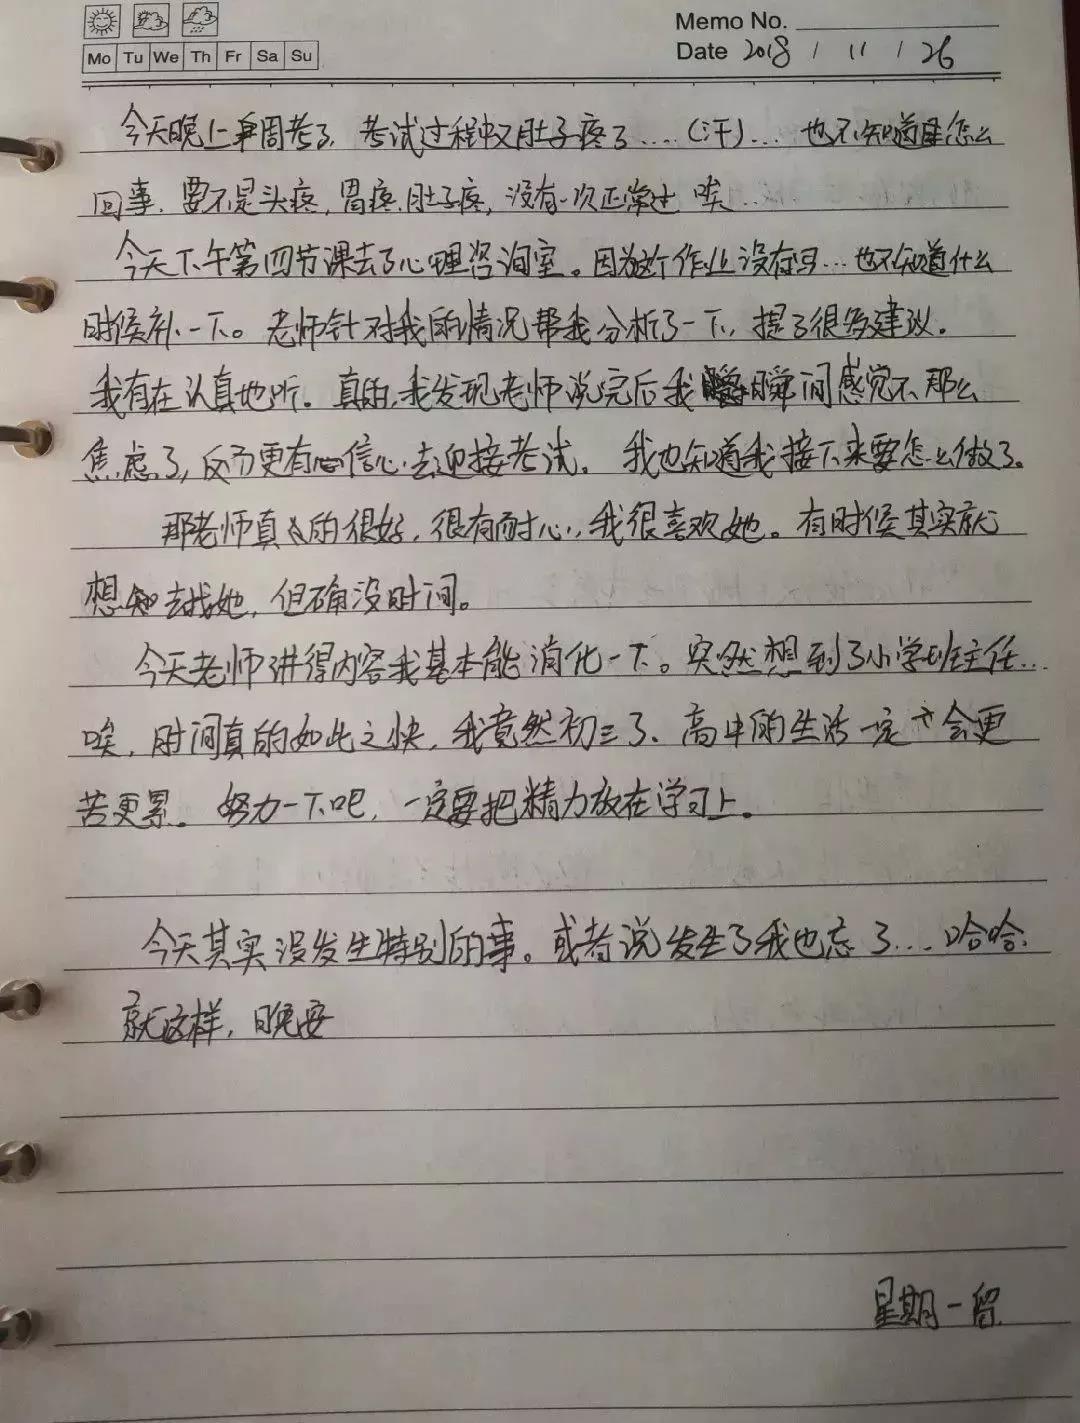 Memo No.
Mo Tu We Th Fr Sa Su
Date 2018 / 11 / 26
今天晚上周考了, 考试过程中又肚子疼了....(汗)... 也不知道是怎么
回事. 要不是头疼, 胃疼, 肚子疼, 没有一次正常过 唉...
今天下午第四节课去了心理咨询室。因为这个作业没有写...也不知道什么
时候补一下。老师针对我的情况帮我分析了一下, 提了很多建议.
我有在认真地听。真的, 我发现老师说完后我瞬间感觉不那么
焦虑了, 反而更有信心去迎接考试. 我也知道我接下来要怎么做了。
那老师真的很好, 很有耐心, 我很喜欢她。有时候其实就
想去找她, 但确没时间。
今天老师讲得内容我基本能消化一下。突然想到了小学班主任...
唉, 时间真的如此之快, 我竟然初三了、高中的生活一定会更
苦更累。努力一下吧, 一定要把精力放在学习上。
今天其实没发生特别的事。或者说发生了我也忘了.... 哈哈.
就这样, 晚安
星期一留.